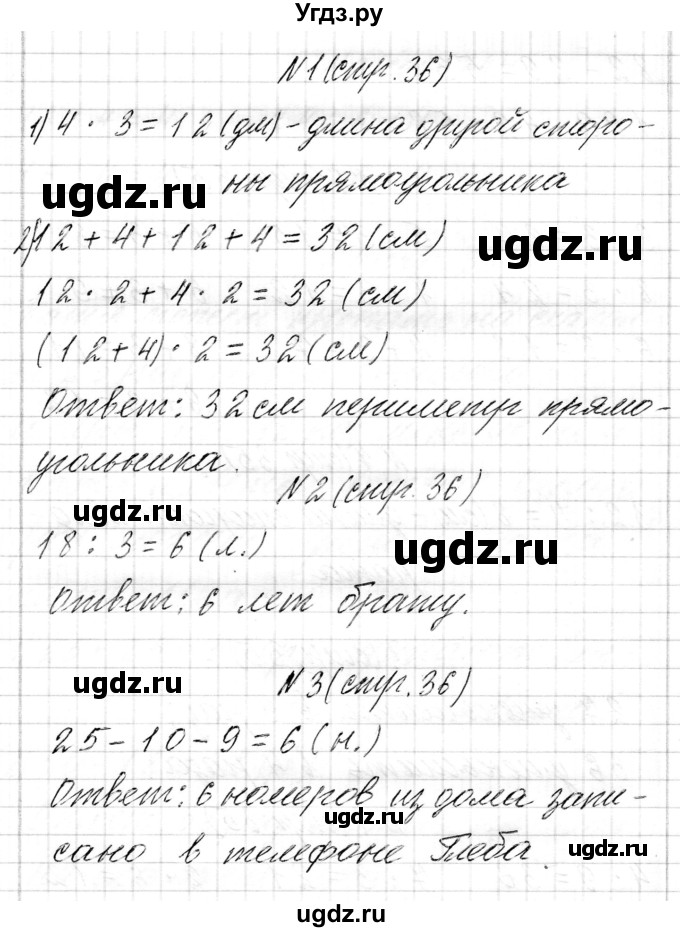 Угдз.ру
N1 (стр. 36)
1) 4 · 3 = 12 (дм) - длина другой сторо-
ны прямоугольника
ugdz.ru
2) 12 + 4 + 12 + 4 = 32 (см)
ugdz.ru
12 · 2 + 4 · 2 = 32 (см)
(12 + 4) · 2 = 32 (см)
Ответ: 32 см периметр прямо-
угольника.
N2 (стр. 36)
ugdz.ru
18 : 3 = 6 (л.)
ugdz.ru
Ответ: 6 лет брату.
N3 (стр. 36)
ugdz.ru
25 - 10 - 9 = 6 (н.)
Ответ: 6 номеров из дома запи-
ugdz.ru
сано в телефоне Глеба.
ugdz.ru
ugdz.ru